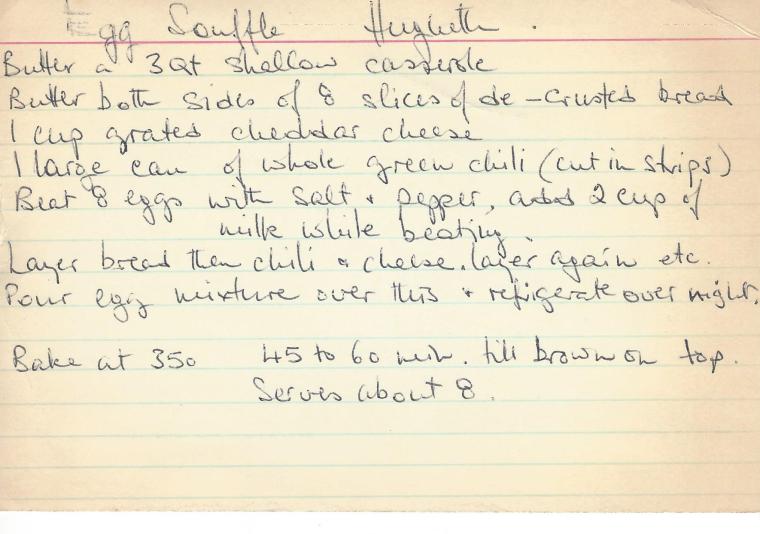 Egg Souffle
Butter a 3 Qt shallow casserole
Butter both sides of 8 slices of de-crusted bread
1 cup grated cheddar cheese
1 large can of whole green chili (cut in strips)
Beat 8 eggs with salt + pepper, add 2 cup of
milk while beating.
Layer bread then chili + cheese. layer again etc.
Pour egg mixture over this + refigerate over night.
Bake at 350 45 to 60 min. till brown on top.
Serves about 8.